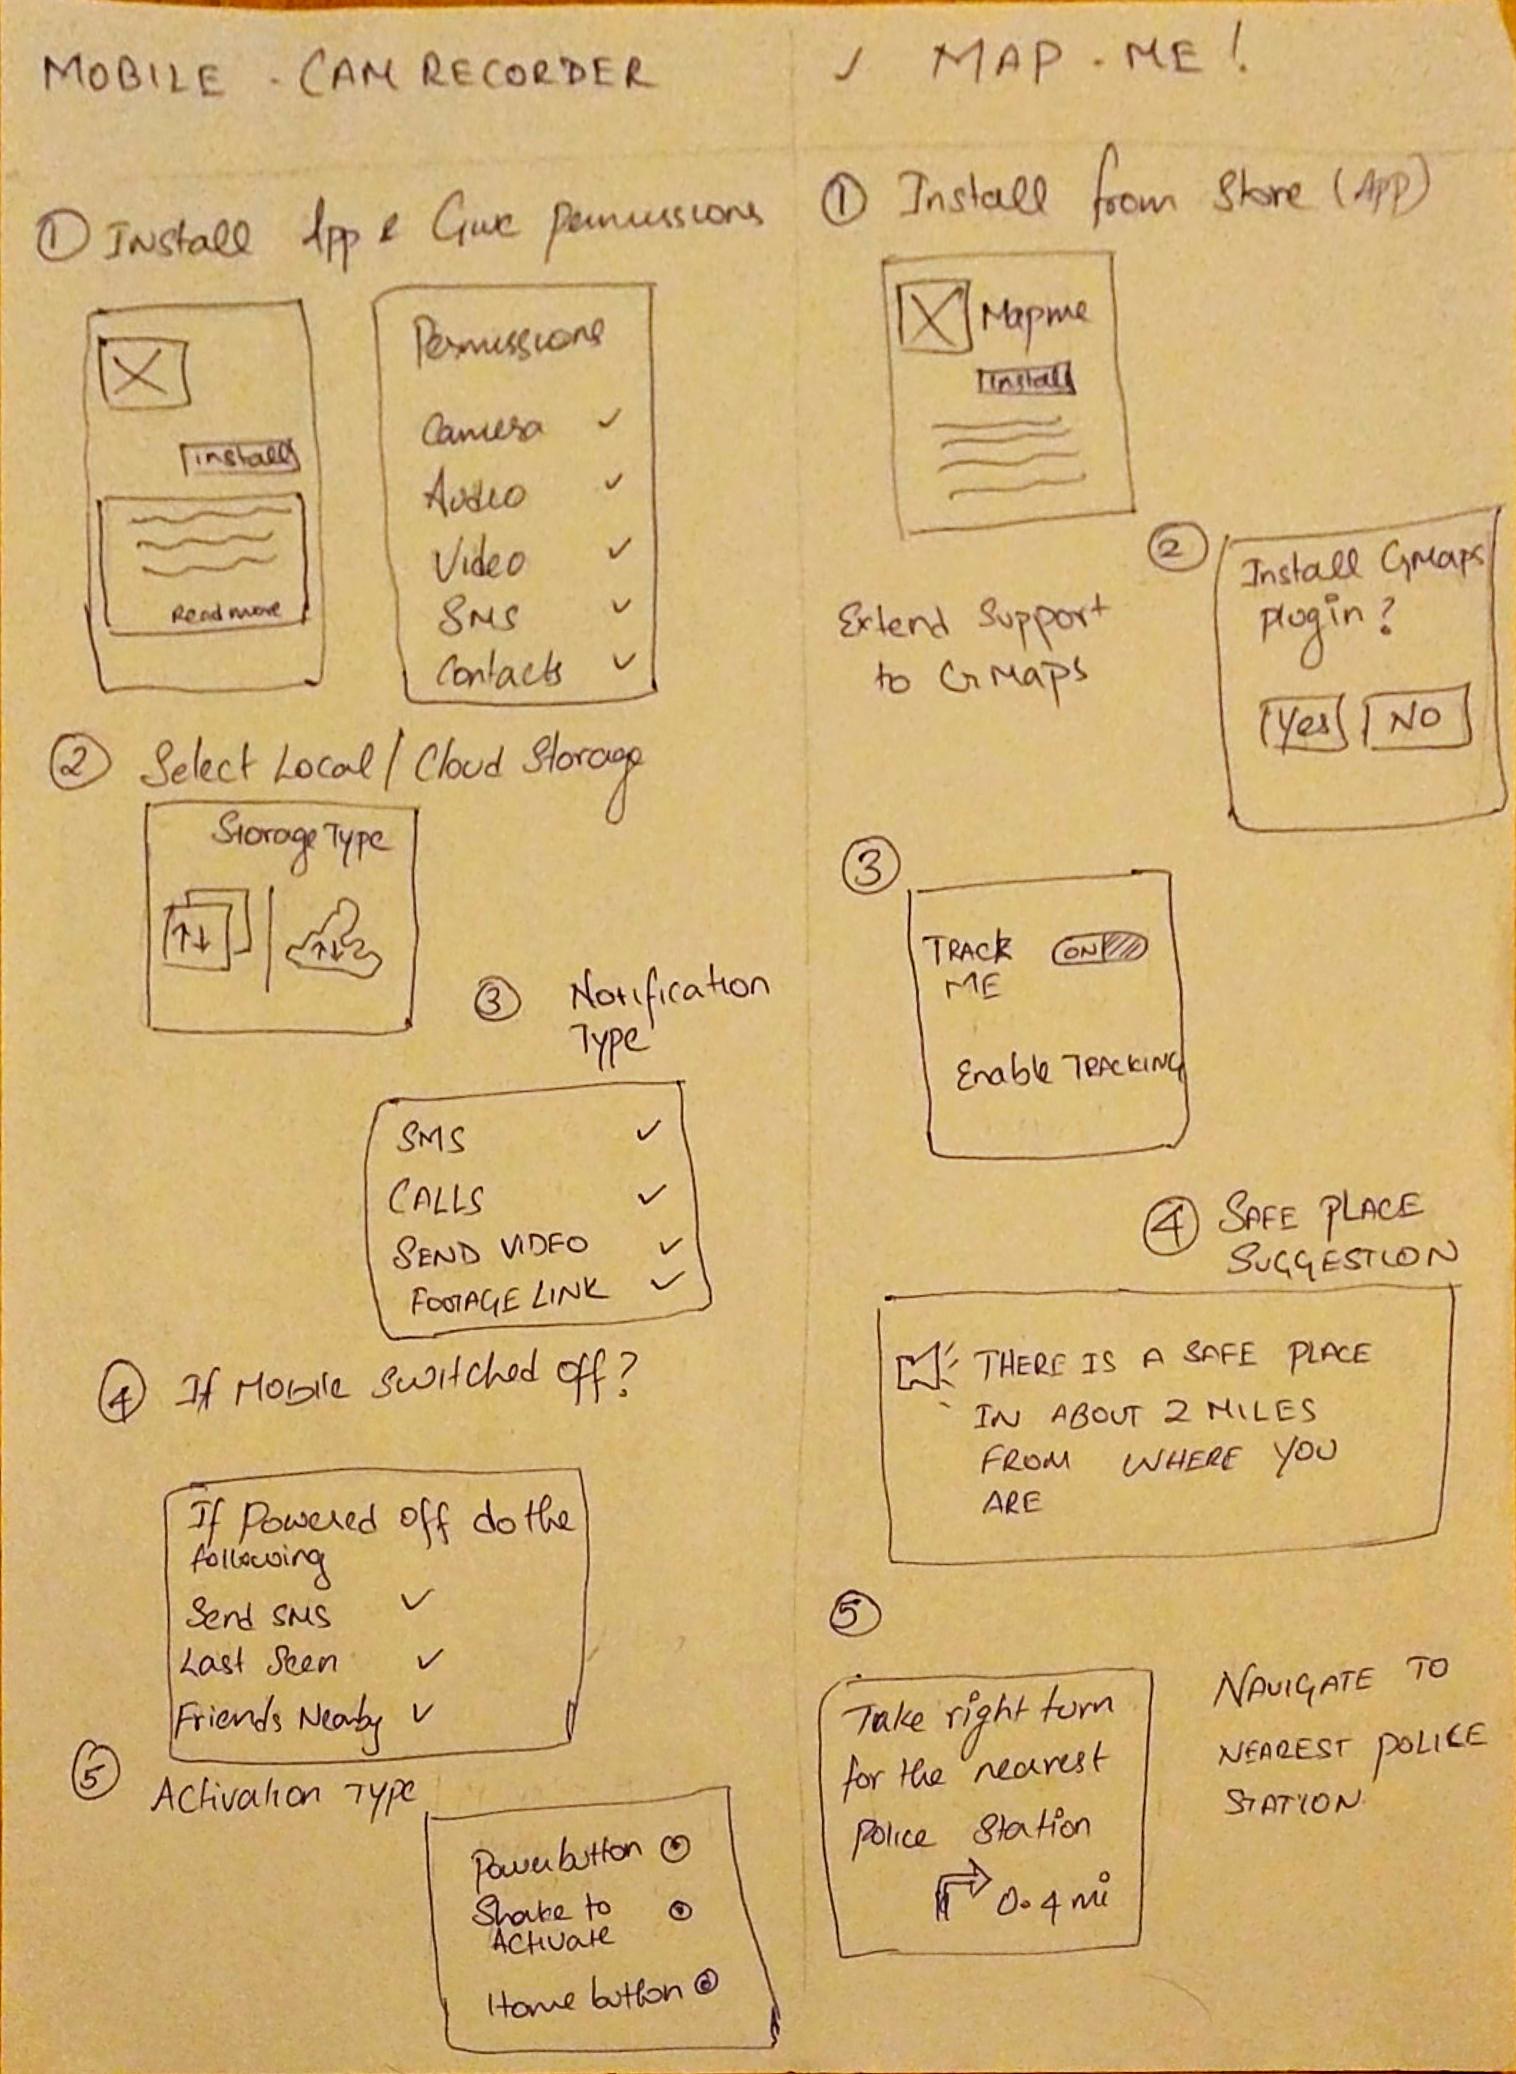 MOBILE - CAM RECORDER
① Install App & Give permissions
install
Read more
Permissions
Camera ✓
Audio ✓
Video ✓
SMS ✓
Contacts ✓
② Select Local / Cloud Storage
Storage Type
③ Notification
Type
SMS ✓
CALLS ✓
SEND VIDEO ✓
FOOTAGE LINK ✓
④ If Mobile Switched off?
If Powered off do the
following
Send SMS ✓
Last Seen ✓
Friends Nearby ✓
⑤ Activation Type
Power button
Shake to
Activate
Home button
✓ MAP - ME!
① Install from Store (App)
Mapme
Install
②
Extend Support
to GMaps
Install GMaps
plugin?
Yes NO
③
TRACK ON
ME
Enable TRACKING
④ SAFE PLACE
SUGGESTION
THERE IS A SAFE PLACE
IN ABOUT 2 MILES
FROM WHERE YOU
ARE
⑤
Take right turn
for the nearest
police Station
0.4 mi
NAVIGATE TO
NEAREST POLICE
STATION